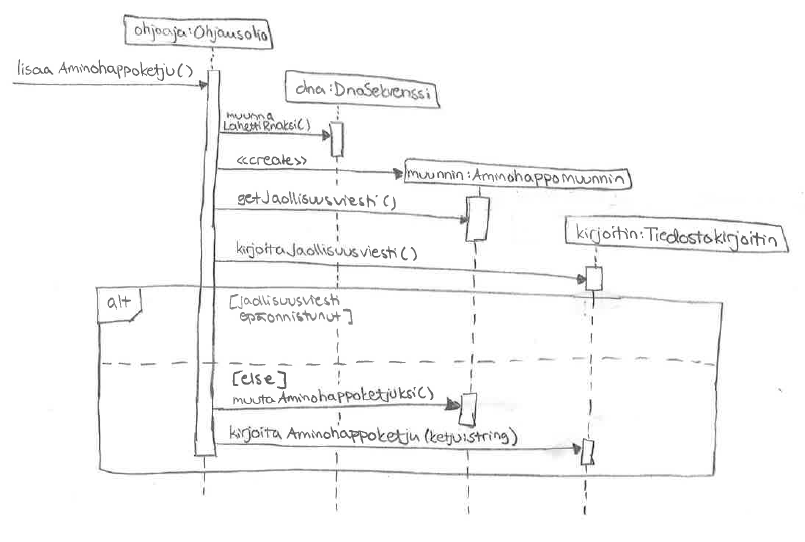 ohjaaja:Ohjausolio
lisaa Aminohappoketju()
dna:DnaSekvenssi
muunna
LahettiRnaksi()
<<create>>
muunnin:Aminohappomuunnin
getJaollisuusviesti()
kirjoitin:Tiedostokirjoitin
kirjoitaJaollisuusviesti()
alt
[Jaollisuusviesti
epäonnistunut]
[else]
muuta Aminohappoketjuksi()
kirjoita Aminohappoketju (ketju:string)